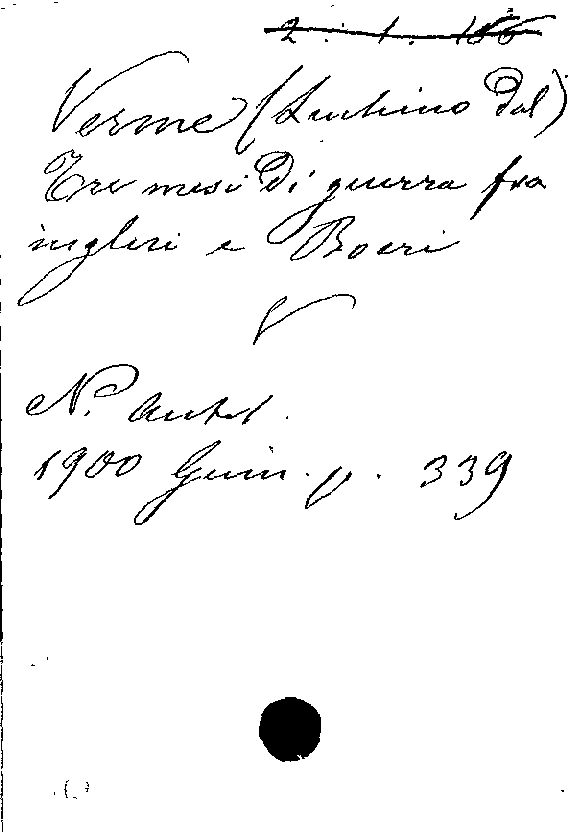 2 : 1. 186
Verme (Luchino Dal)
Tre mesi di guerra fra
inglesi e Boeri
V
N. Antol.
1900 Genn. p. 339